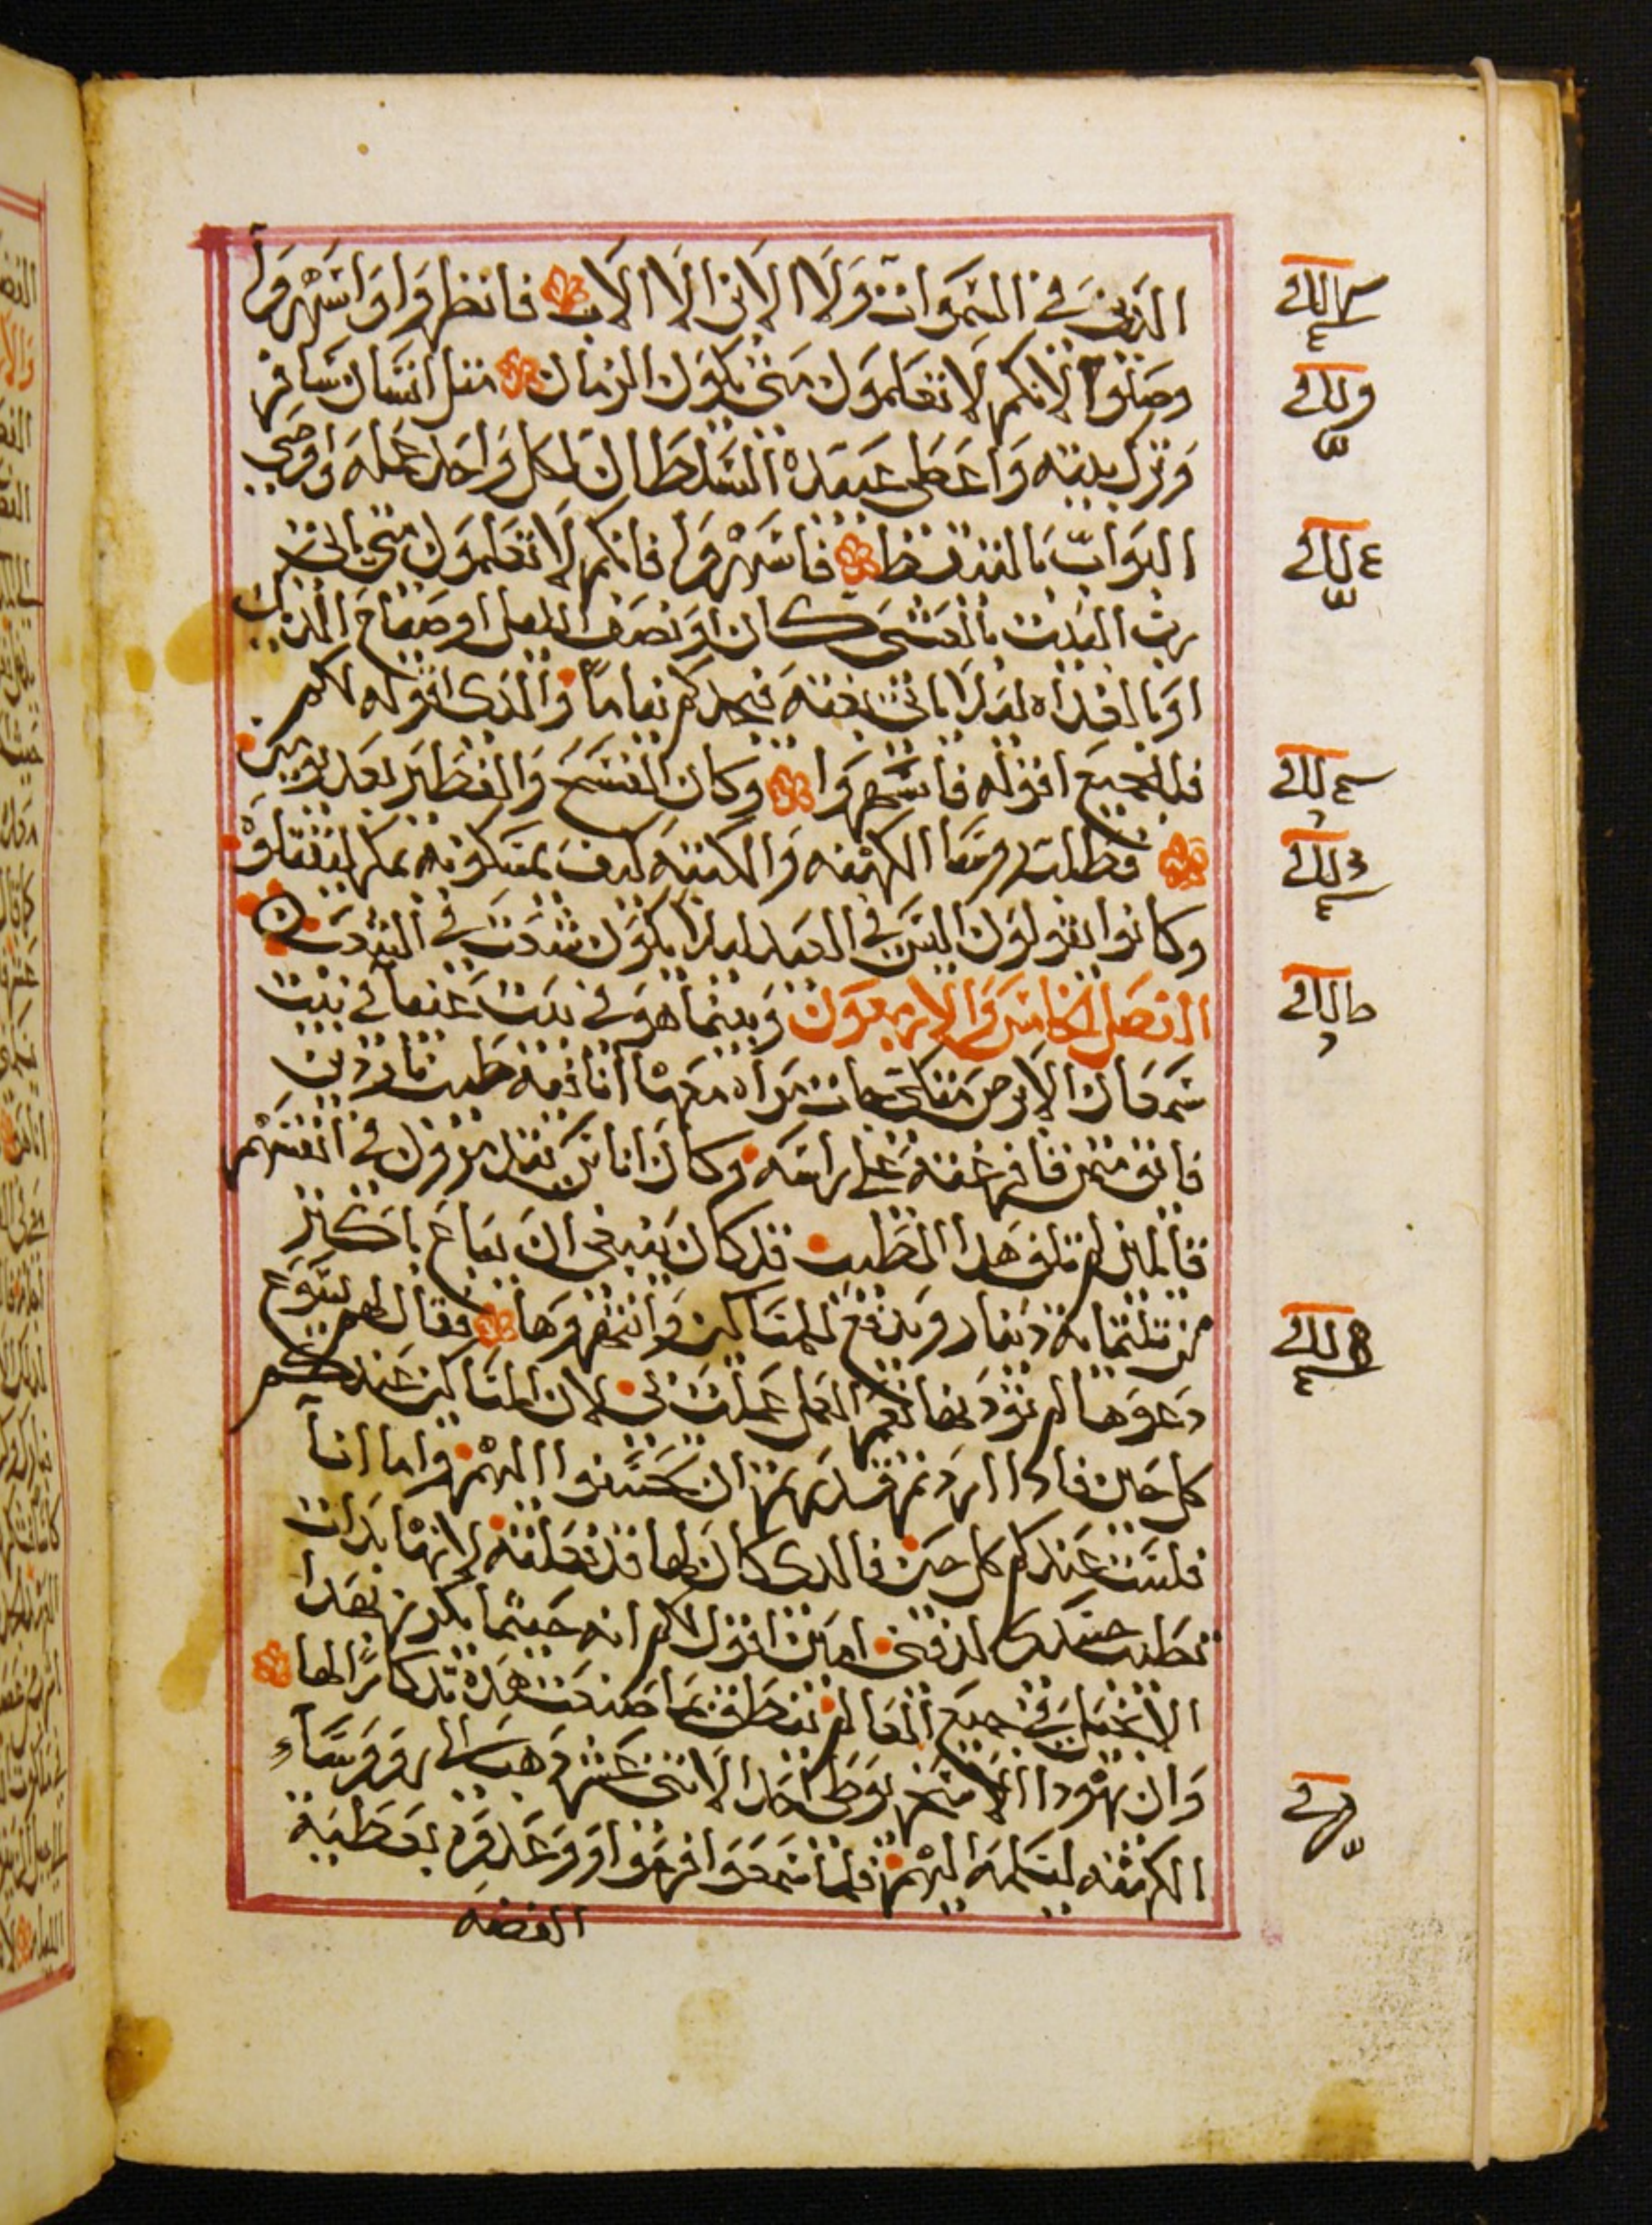 الذين في السموات ولا الابن الا الاب فانظروا واسهروا
وصلوا لانكم لا تعلمون متى يكون الزمان مثل انسان سافر
وترك بيته واعطى عبيده السلطان لكل واحد عمله واوصى
البواب بالتيقظ فاسهروا فانكم لا تعلمون متى ياتى
رب البيت بالعشى كان او نصف الليل او صياح الديك
او بالغداه ليلا ياتى بغته فيجدكم نياما والذى اقوله لكم
فللجميع اقوله فاسهروا وكان الفسح والفطير بعد يومين
فطلب روسا الكهنه والكتبه كيف يمسكونه بمكر ليقتلوه
وكانوا يقولون ليس في العيد ليلا يكون شغب في الشعب
الفصل الخامس والاربعون وبينما هو في بيت عنيا في بيت
سمعان الابرص متكى جات مراه معها انا فيه طيب ناردين
فايق مثمن فافرغته على راسه وكان اناس يتذمرون في انفسهم
قايلين لم تلف هدا الطيب قد كان ينبغى ان يباع باكثر
من ثلثمايه دينار ويدفع للمساكين وانتهروها فقال لهم يسوع
دعوها لم تؤذونها نعم العمل عملت بى لان المساكين عندكم
كل حين فادا اردتم قدرتم ان تحسنوا اليهم واما انا
فلست عندكم كل حين فالدى كان لها قد فعلته لانها بدات
تطيب جسدى لدفنى امين اقول لكم انه حيثما يكرز بهدا
الانجيل في جميع العالم ينطق بما صنعت هده تدكارا لها
وان يهودا الاسخريوطى احد الاثنى عشر دهب الى روساء
الكهنه ليسلمه اليهم فلما سمعوا فرحوا ووعدوه بعطية
الفضه